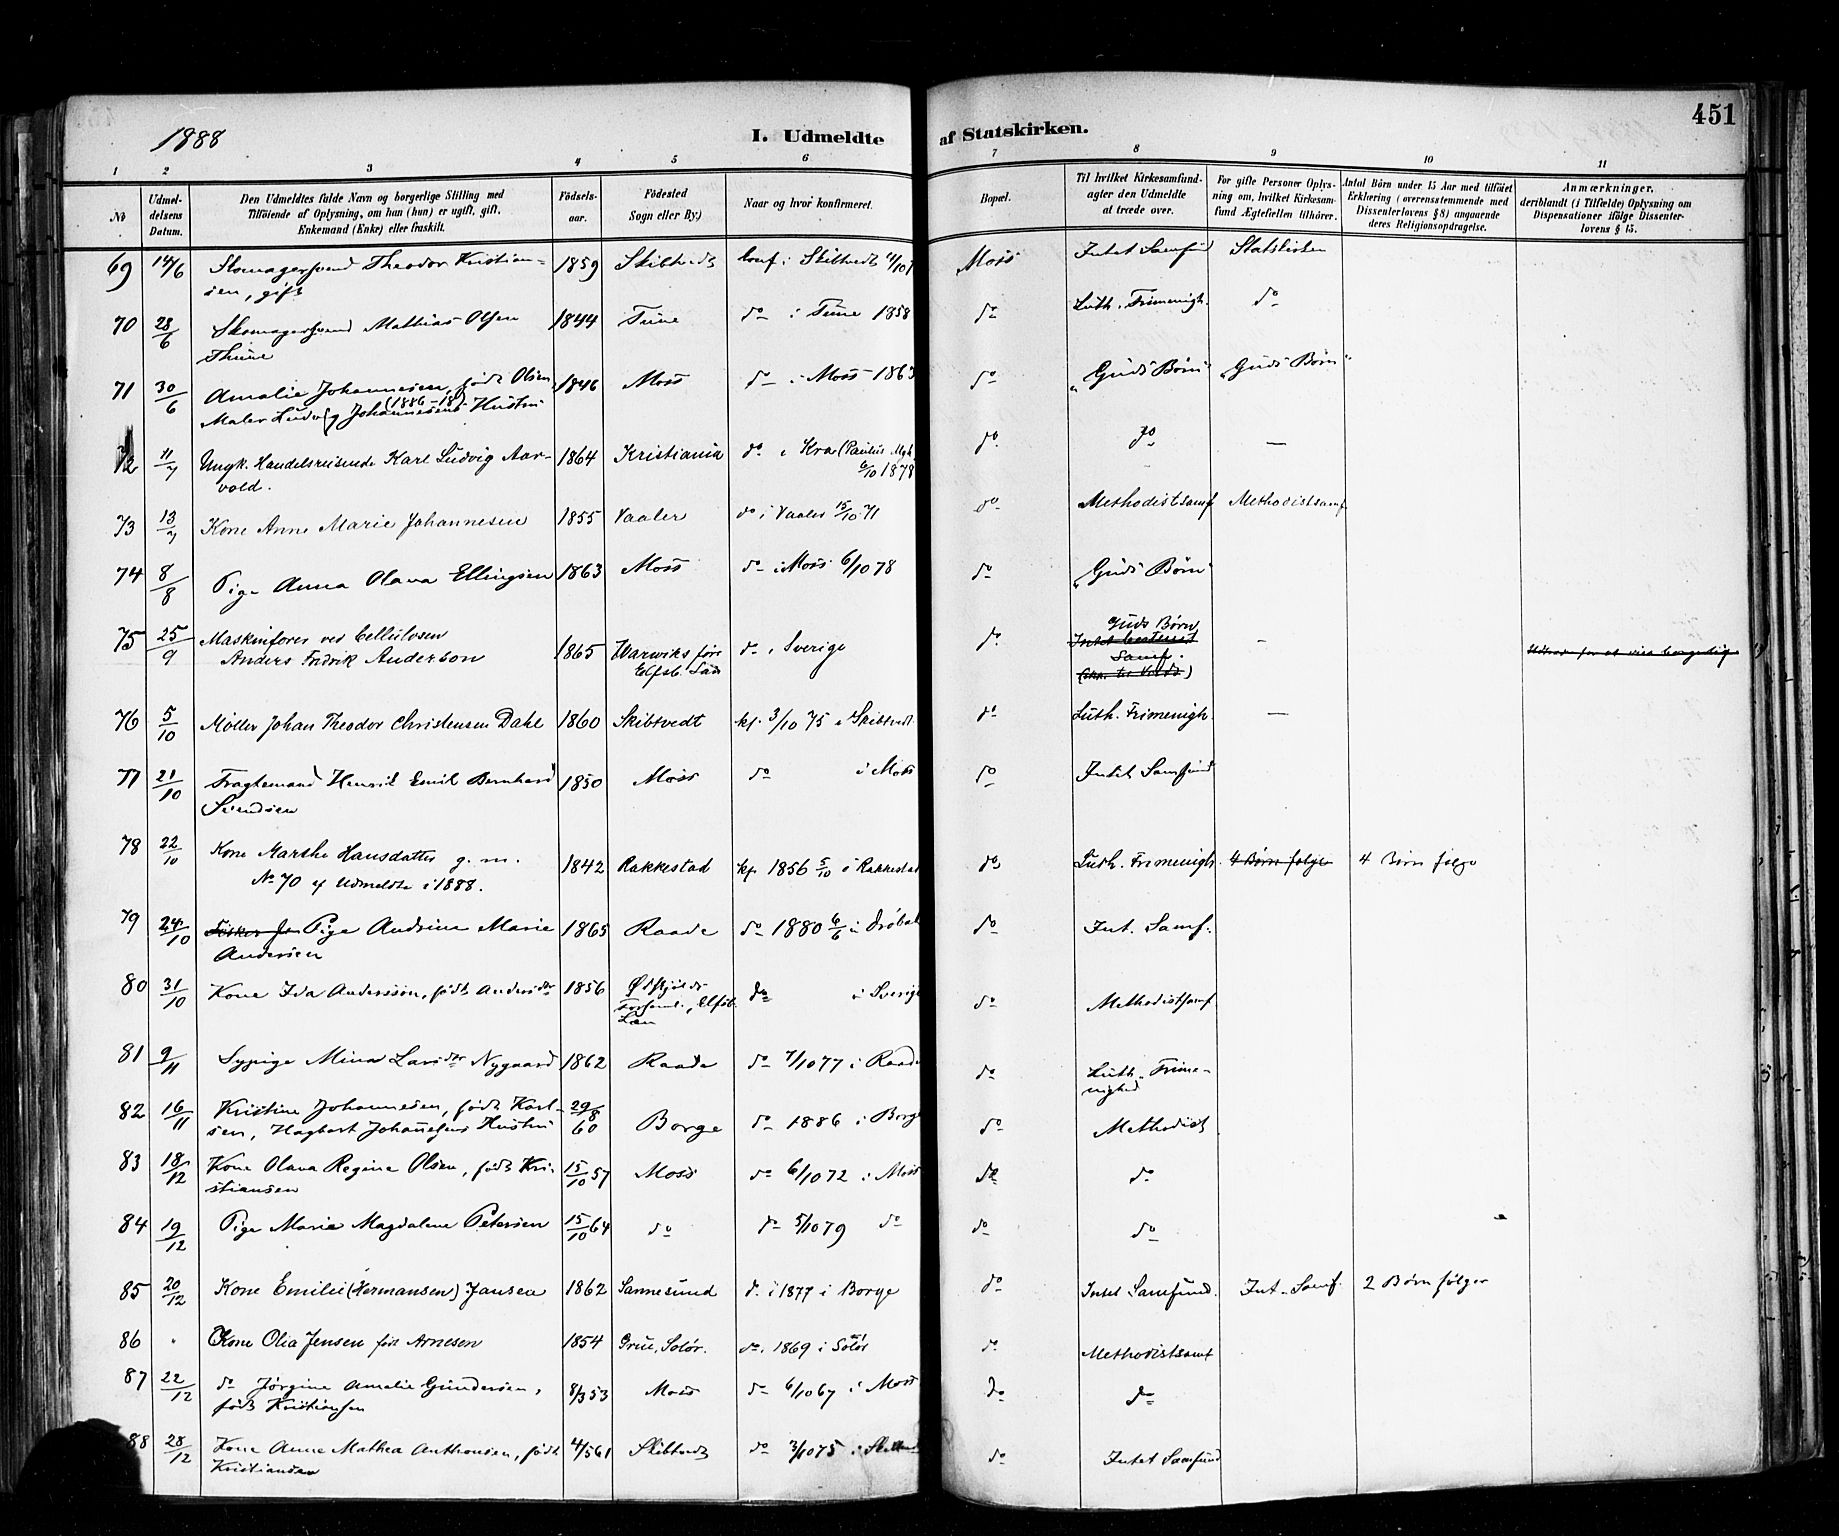 451
1888
I. Udmeldte af Statskirken.
1 2 3 4 5 6 7 8 9 10 11
No
Udmeldelsens Datum.
Den Udmeldtes fulde Navn og borgerlige Stilling med
Tilföiende af Oplysning, om han (hun) er ugift, gift,
Enkemand (Enke) eller fraskilt.
Födselsaar.
Födested
Sogn eller By.)
Naar og hvor konfirmeret.
Bopæl.
Til hvilket Kirkesamfund
agter den Udmeldte
at træde over.
For gifte Personer Oplys-
ning om, hvilket Kirkesam-
fund Ægtefællen tilhörer.
Antal Börn under 15 Aar med tilföiet
Erklæring (overensstemmende med
Dissenterlovens § 8) angaaende
deres Religionsopdragelse.
Anmærkninger,
deriblandt (i Tilfælde) Oplysning om
Dispensationer ifölge Dissenter-
lovens § 15.
69 14/6 Skomagersvend Theodor Kristian= 1859 Skibtvedt konf. i Skibtvedt Moss Intet Samfund Statskirken
sen, gift
70 28/6 Skomagersvend Mathias Olsen 1844 Tune do i Tune 1858 do Luth. Frimenigh. do
Thune
71 30/6 Amalie Johannesen, født Olsen 1846 Moss do i Moss 1863 do "Guds Børn" "Guds Børn"
Maler Ludvig Johannesens Hustru
(1886-18)
72 11/7 Ungk. Handelsreisende Karl Ludvig Aar- 1864 Kristiania do i Kra (Paulus Mgh. do do —
vold. 6/10 1878
73 13/7 Kone Anne Marie Johannesen 1855 Vaaler do i Vaaler 15/10 71 do Methodistsamf Methodistsamf.
74 8/8 Pige Anna Olava Ellingsen 1863 Moss do i Moss 6/10 78 do "Guds Børn"
75 25/9 Maskinfører ved Cellulosen 1865 Warwiks før. do i Sverige do Guds Børn —
Anders Fredrik Anderson Elfsb. Län Intet bestemt
Samf.
76 5/10 Møller Johan Theodor Christensen Dahl 1860 Skibtvedt kf. 3/10 75 i Skibtvedt. do Luth. Frimenigh. —
77 21/10 Fragtemand Henrik Emil Bernhard 1850 Moss do i Moss do Intet Samfund
Svendsen
78 22/10 Kone Marthe Hansdatter g. m. 1842 Rakkestad kf. 1856 5/10 i Rakkestad do Luth. Frimenigh. 4 Børn følger 4 Børn følge
No 70 af Udmeldte i 1888.
79 24/10 Pige Andrine Marie 1865 Raade do 1880 6/6 i Drøbak do Int. Samf.
Andersen
80 31/10 Kone Ida Andersson, født Andersdtr 1856 Ødskjølds do i Sverige do Methodistsamf
Forsaml., Elfsb.
Län
81 9/11 Sypige Mina Larsdtr Nygaard 1862 Raade do 7/10 77 i Raade do Luth. Frime-
nighed
82 16/11 Kristine Johannesen, født Karl- 29/8 60 Borge do 1886 i Borge do Methodist
sen, Hagbart Johannesens Hustru
83 18/12 Kone Olava Regine Olsen, født Kri- 15/10 57 Moss do 6/10 72 i Moss do do
stiansen
84 19/12 Pige Marie Magdalene Petersen 15/10 64 do do 5/10 79 do do do
85 20/12 Kone Emilie (Hermansen) Jansen 1862 Sannesund do i 1877 i Borge do Intet Samfund. Int. Samf. 2 Børn følger
86 " Kone Olea Jensen født Arnesen 1854 Grue, Solør. do. 1869 i Solør do Methodistsamf
87 22/12 do Jørgine Amalie Gundersen, 8/3 53 Moss do 6/10 67 i Moss do do
født Kristiansen
88 28/12 Kone Anne Mathea Anthonsen, født 4/5 61 Skibtvedt do 3/10 75 i Skibtvedt do Intet Samfund
Kristiansen